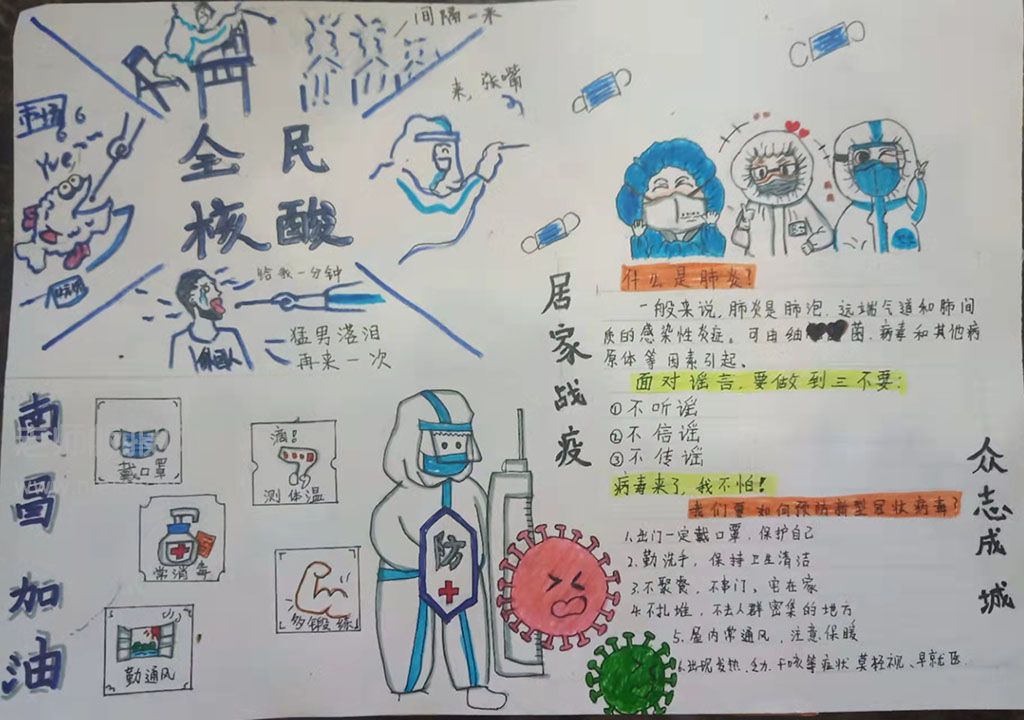 间隔一米
来，张嘴
市场
66
Yue~
全民
核酸
给我一分钟
猛男落泪
再来一次
南昌加油
戴口罩
滴！
测体温
常消毒
多锻练
勤通风
防
居家战疫
什么是肺炎？
一般来说，肺炎是肺泡、远端气道和肺间
质的感染性炎症。可由细菌、病毒和其他病
原体等因素引起、
面对谣言，要做到三不要：
①不听谣
②不信谣
③不传谣
病毒来了，我不怕！
我们要如何预防新型冠状病毒？
1.出门一定戴口罩，保护自己
2.勤洗手，保持卫生清洁
3.不聚餐，不串门、宅在家
4.不扎堆，不去人群密集的地方
5.屋内常通风，注意保暖
6.出现发热、乏力、干咳等症状莫轻视、早就医.
众志成城